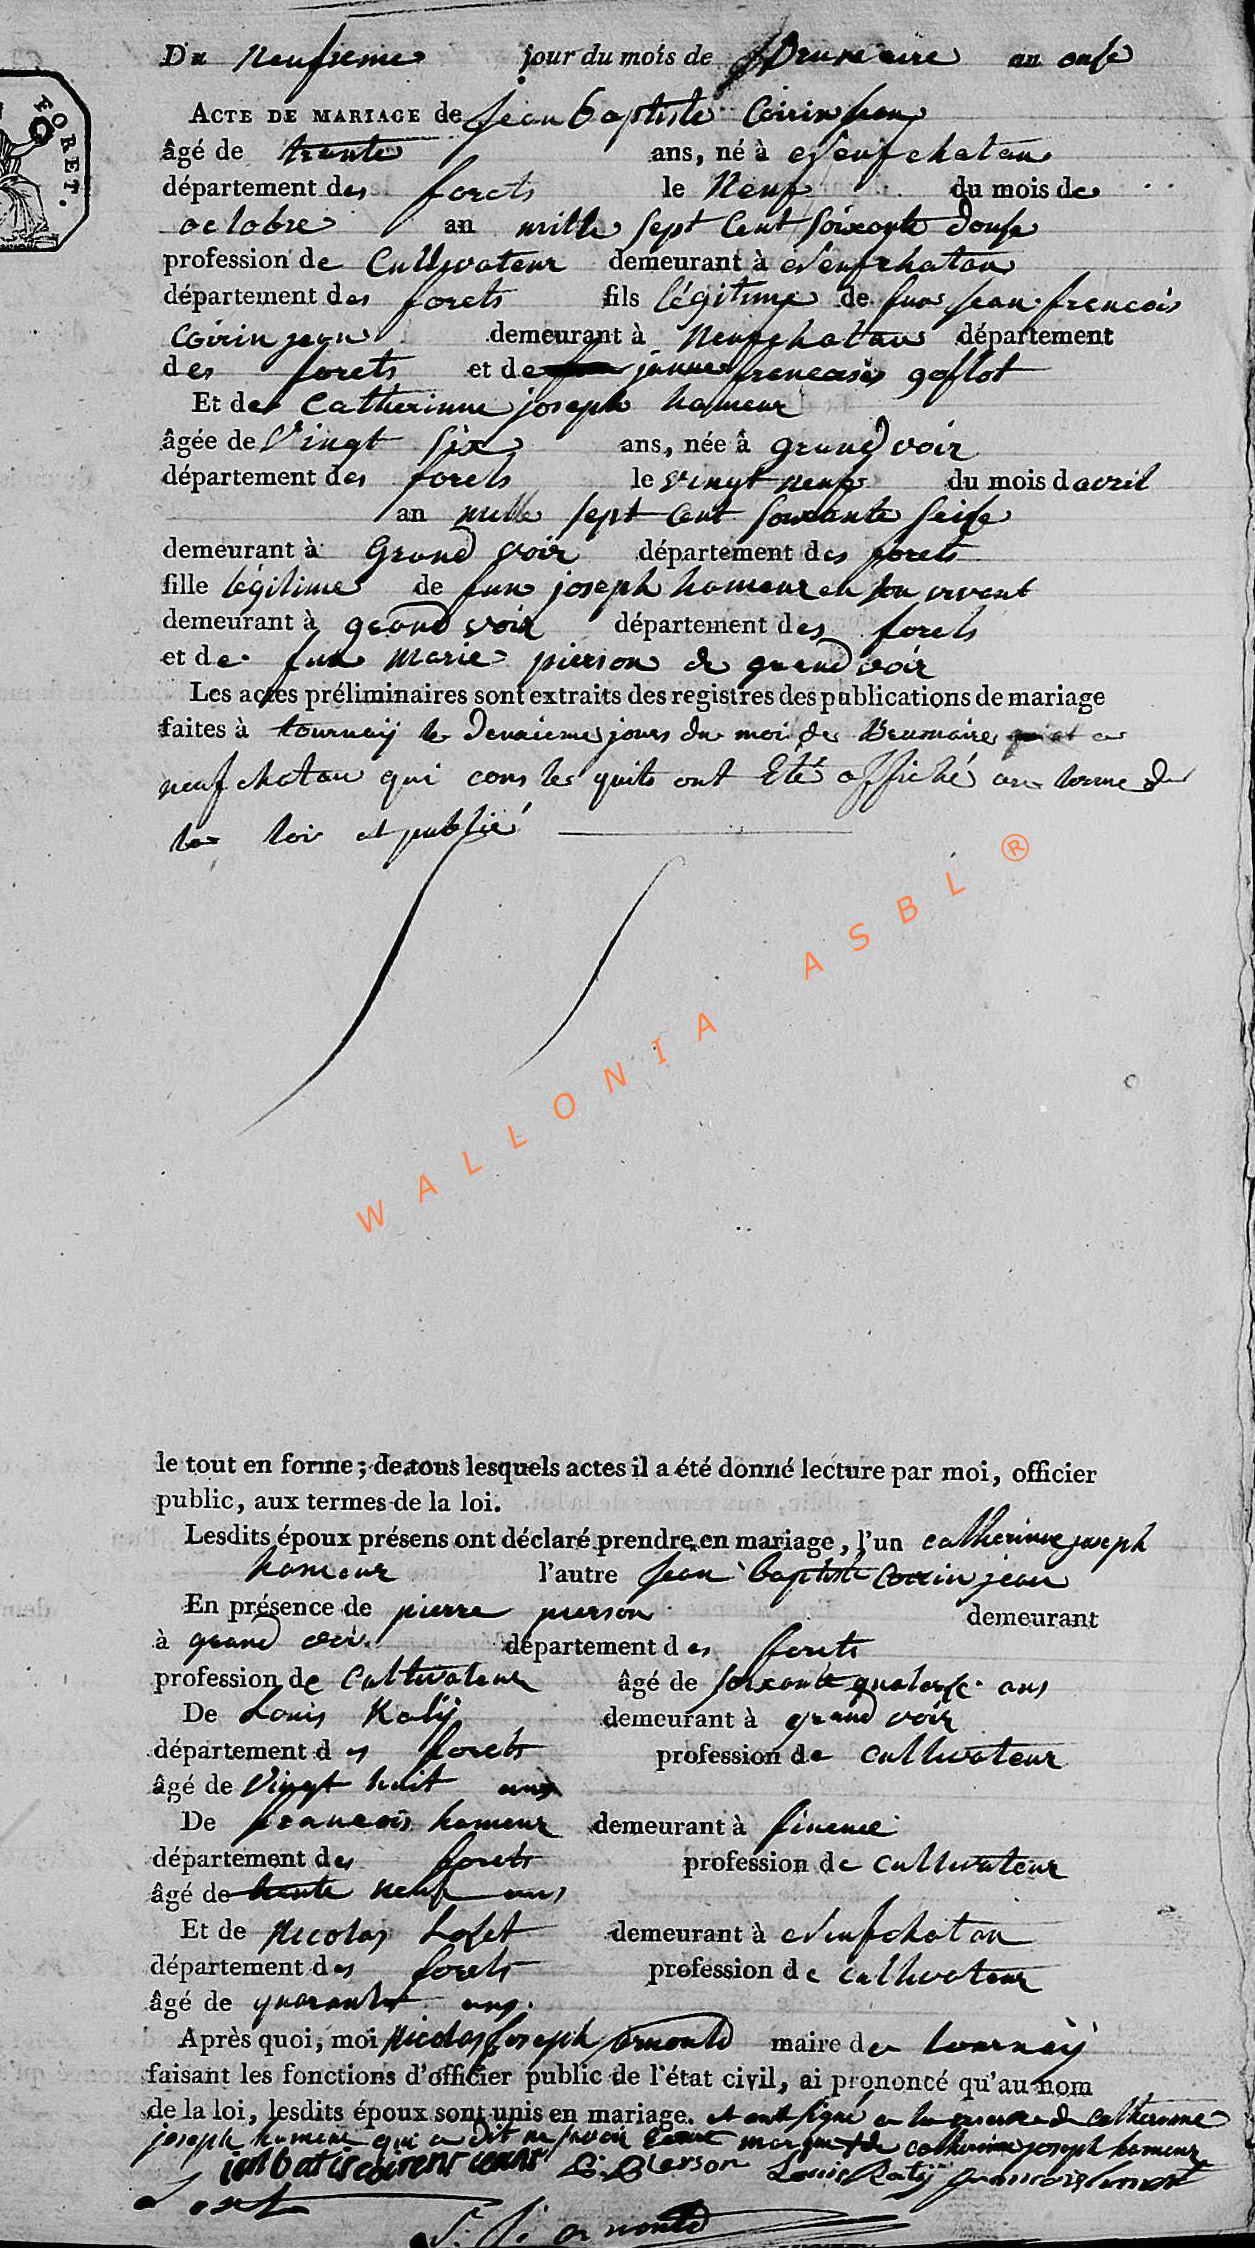 Du neufieme jour du mois de Brumaire an onse
FORET.
ACTE DE MARIAGE de jean baptiste Coirin jean
âgé de trante ans, né à Neufchatau
département des forets le Neuf du mois de
octobre an mille sept Cent soixante douse
profession de Cultivateur demeurant à Neufchatau
département des forets fils légitime de fun jean francois
Coirin jean demeurant à Neufchatau département
des forets et de janne francaise goffot
Et de Catherinne joseph hameur
âgée de Vingt six ans, née à grand voir
département des forets le vingt neuf du mois d avril
an mille sept Cent soixante seise
demeurant à Grand voir département des forets
fille légitime de fun joseph hameur en son vivent
demeurant à grand voir département des forets
et de fun marie pierson de grand voir
Les actes préliminaires sont extraits des registres des publications de mariage
faites à tournaÿ le deuxieme jours du moi de Brumaire et a
neufchatau qui ont Eté affiché au terme de
la loi et publié
WALLONIA ASBL ®
le tout en forme ; de tous lesquels actes il a été donné lecture par moi, officier
public, aux termes de la loi.
Lesdits époux présens ont déclaré prendre en mariage, l'un catherinne joseph
hameur l'autre jean baptiste Coirin jean
En présence de pierre pierson demeurant
à grand voir département des forets
profession de Cultivateur âgé de soixante quatorse ans
De Louis Ratÿ demeurant à grand voir
département des forets profession de cultivateur
âgé de Vingt huit ans
De francois hameur demeurant à
département des forets profession de cultivateur
âgé de trente neuf ans
Et de Nicolas demeurant à Neufchatau
département des forets profession de cultivateur
âgé de quarante ans.
Après quoi, moi Nicolas joseph arnould maire de tournaÿ
faisant les fonctions d'officier public de l'état civil, ai prononcé qu'au nom
de la loi, lesdits époux sont unis en mariage. et ont signé a la de Catherinne
joseph hameur qui a dit ne savoir Ecrire marque + de catherinne joseph hameur
P. Pierson Louis Ratÿ
N. J. arnould